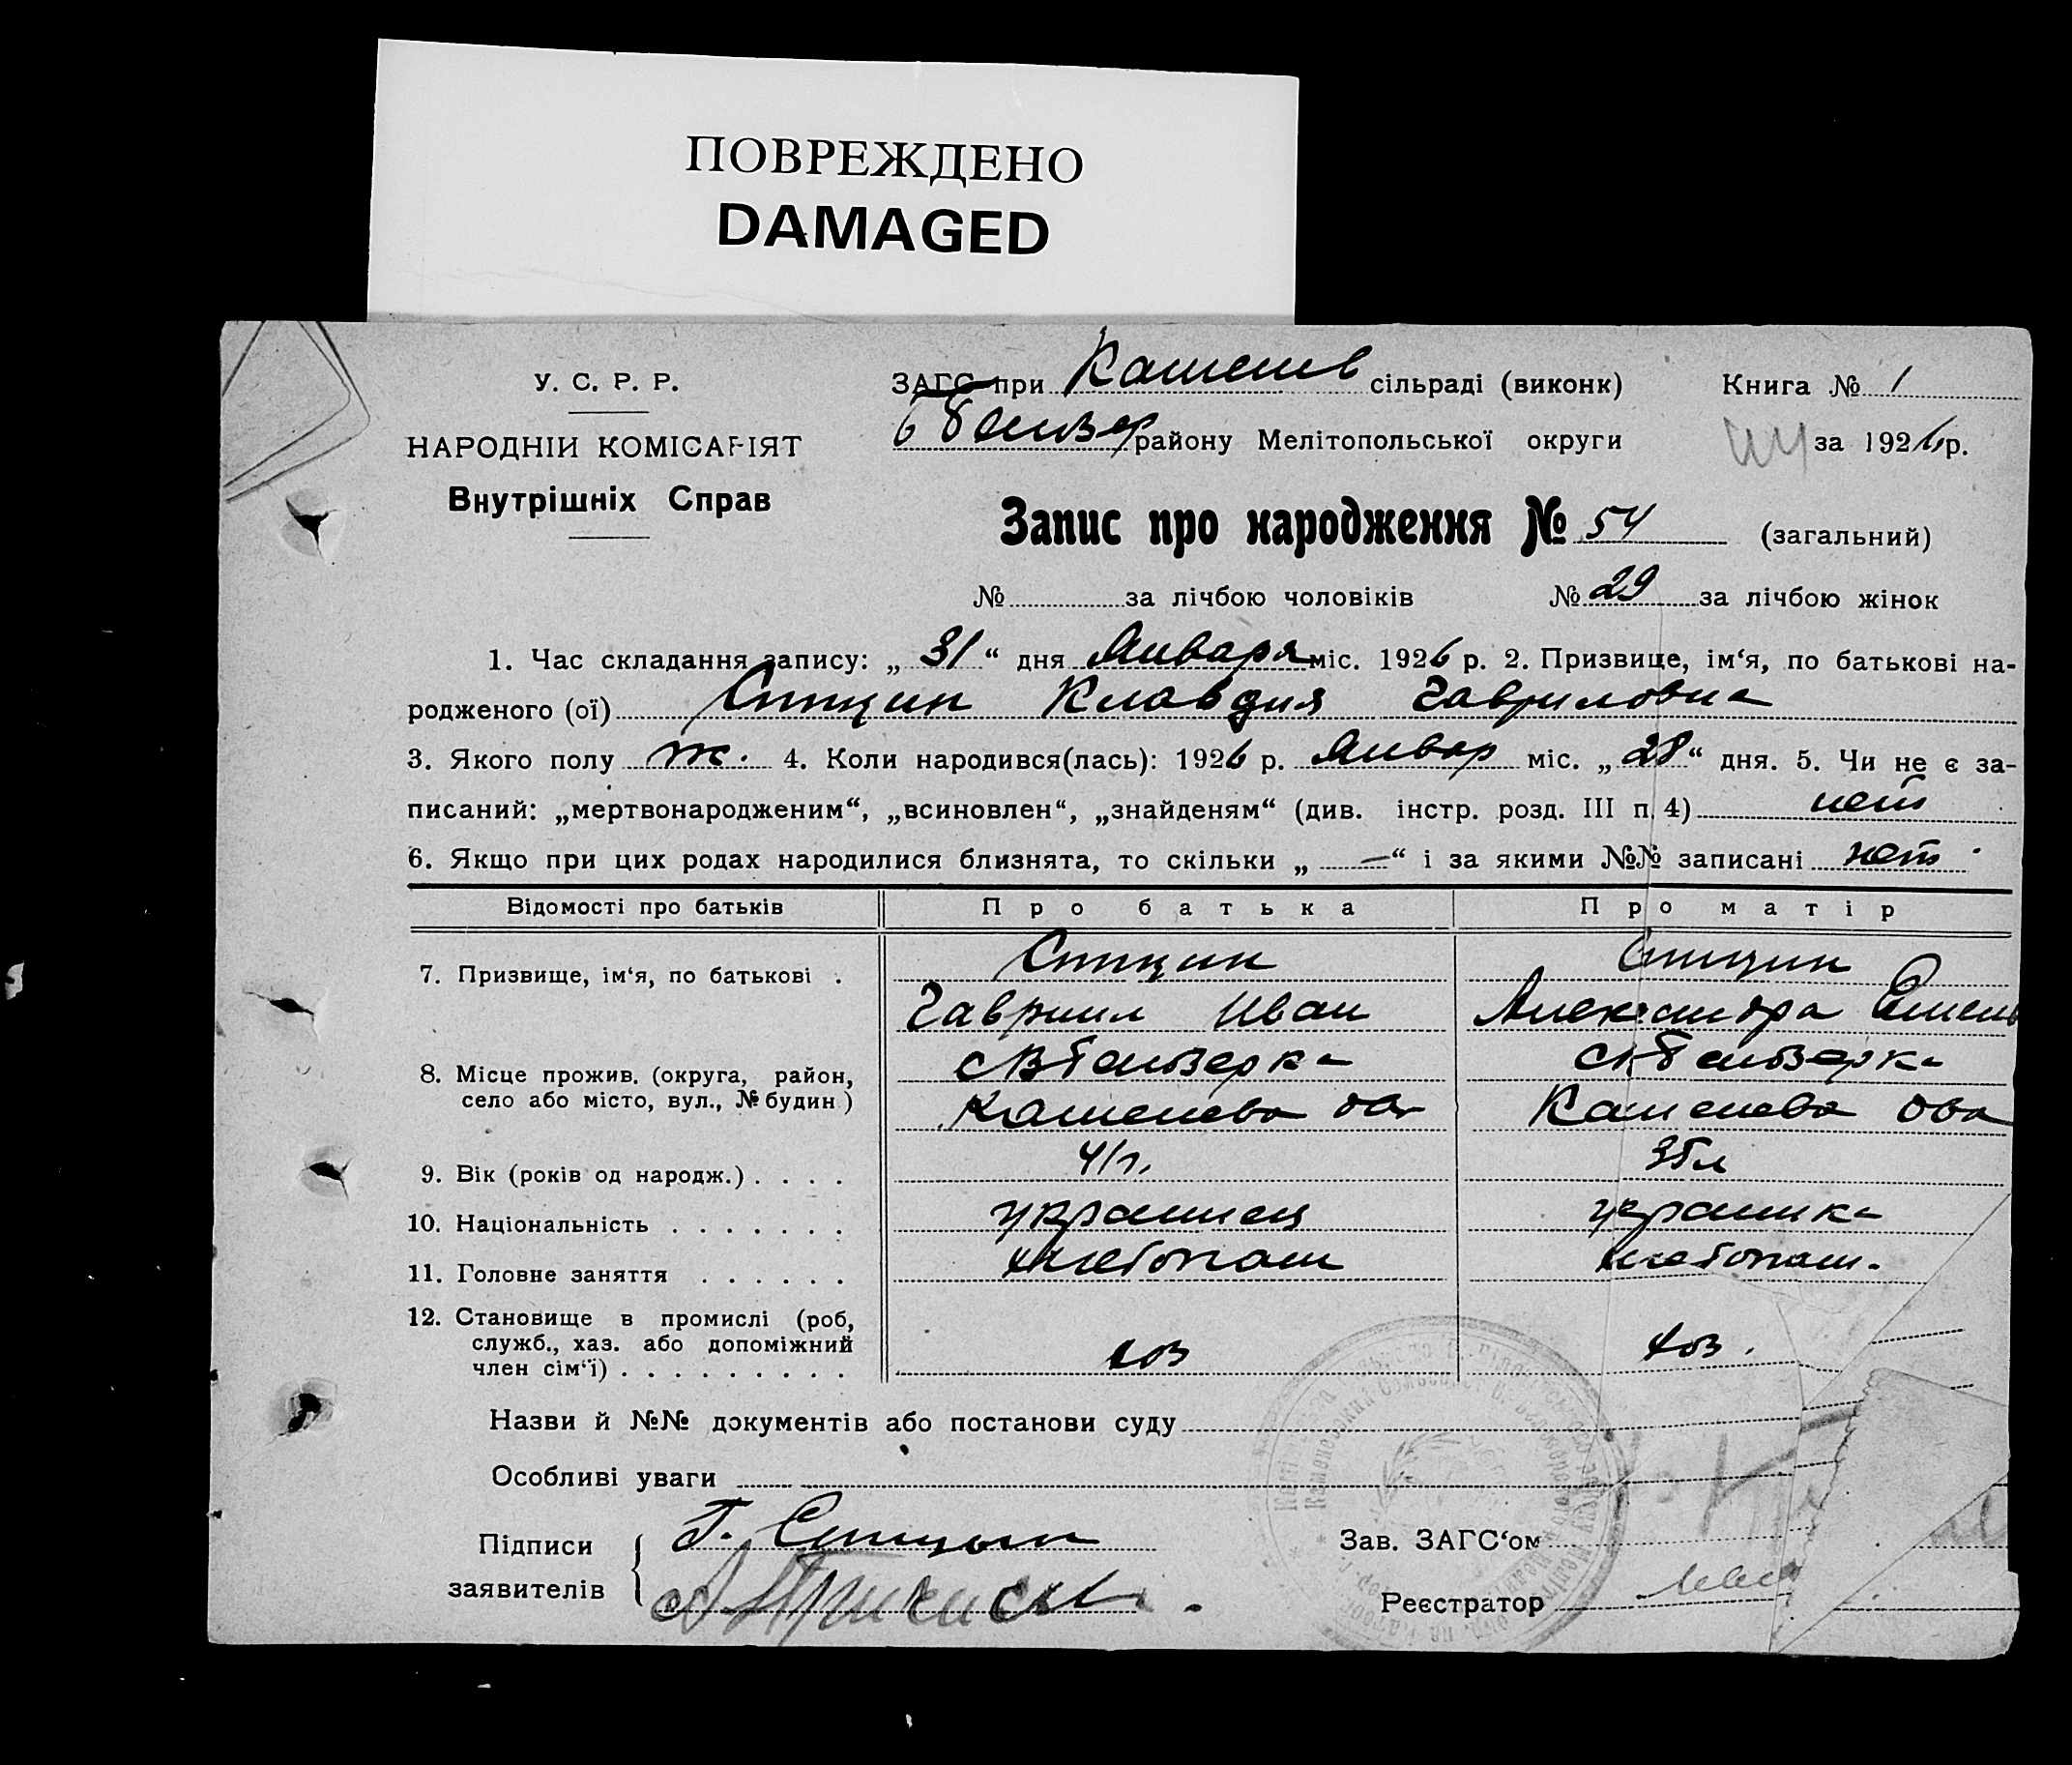 ПОВРЕЖДЕНО
DAMAGED
У. С. Р. Р.
НАРОДНІЙ КОМІСАРІЯТ
Внутрішніх Справ
ЗАГС при Каменев сільраді (виконк) Книга № 1
району Мелітопольської округи за 1926 р.
Запис про народження № 54 (загальний)
№ за лічбою чоловіків № 29 за лічбою жінок
1. Час складання запису: „ 31 “ дня Января міс. 1926 р. 2. Призвище, ім‘я, по батькові на-
родженого (ої) Клавдия Гавриловна
3. Якого полу ж. 4. Коли народився(лась): 1926 р. Январ міс. „ 28 “ дня. 5. Чи не є за-
писаний: „мертвонародженим“, „всиновлен“, „знайденям“ (див. інстр. розд. III п. 4) нет
6. Якщо при цих родах народилися близнята, то скільки „ — “ і за якими №№ записані нет
Відомості про батьків Про батька Про матір
7. Призвище, ім‘я, по батькові .
Гавриил Иван Александра Емель
8. Місце прожив. (округа, район,
село або місто, вул., № будин)
Каменева Каменева
9. Вік (років од народж.) . . . . 41 г. 35 л
10. Національність . . . . . . . украинец украинка
11. Головне заняття . . . . . . хлебопаш хлебопаш.
12. Становище в промислі (роб,
служб., хаз. або допоміжний
член сім‘ї) . . . . . . . . . хоз хоз.
Назви й №№ документів або постанови суду
Особливі уваги
Підписи Г. Зав. ЗАГС‘ом
заявителів Реєстратор